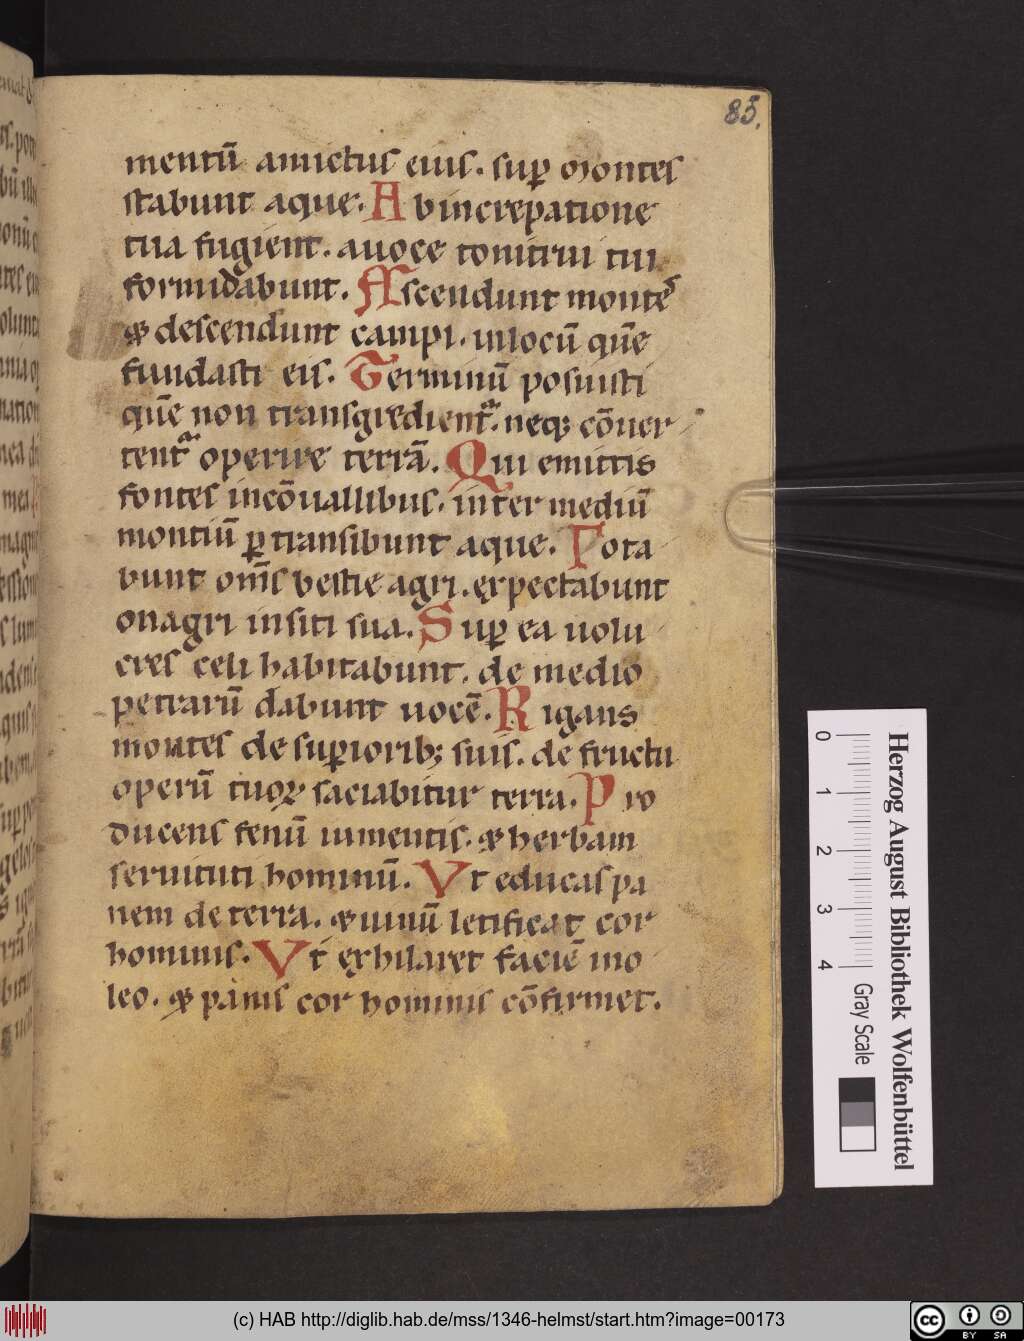 85.
mentū amictus eius. sup̱ montes
stabunt aque. Ab increpatione
tua fugient. a uoce tonitrui tui
formidabunt. Ascendunt montes
& descendunt campi. in locū quē
fundasti eis. Terminū posuisti
quē non transgredient᷑. neq; cōuer
tent᷑ operire terrā. Qui emittis
fontes in cōuallibus. inter mediū
montiū ꝑtransibunt aque. Pota
bunt om̄s bestie agri. expectabunt
onagri in siti sua. Suꝑ ea uolu
cres celi habitabunt. de medio
petrarū dabunt uocē. Rigans
montes de suꝑiorib; suis. de fructu
operū tuoꝝ saciabitur terra. Pro
ducens fenū iumentis. & herbam
seruituti hominū. Vt educas pa
nem de terra. & uinū letificat cor
hominis. Vt exhilaret faciē in o
leo. & panis cor hominis cōfirmet.
0 1 2 3 4
Gray Scale
Herzog August Bibliothek Wolfenbüttel
(c) HAB http://diglib.hab.de/mss/1346-helmst/start.htm?image=00173
cc BY SA